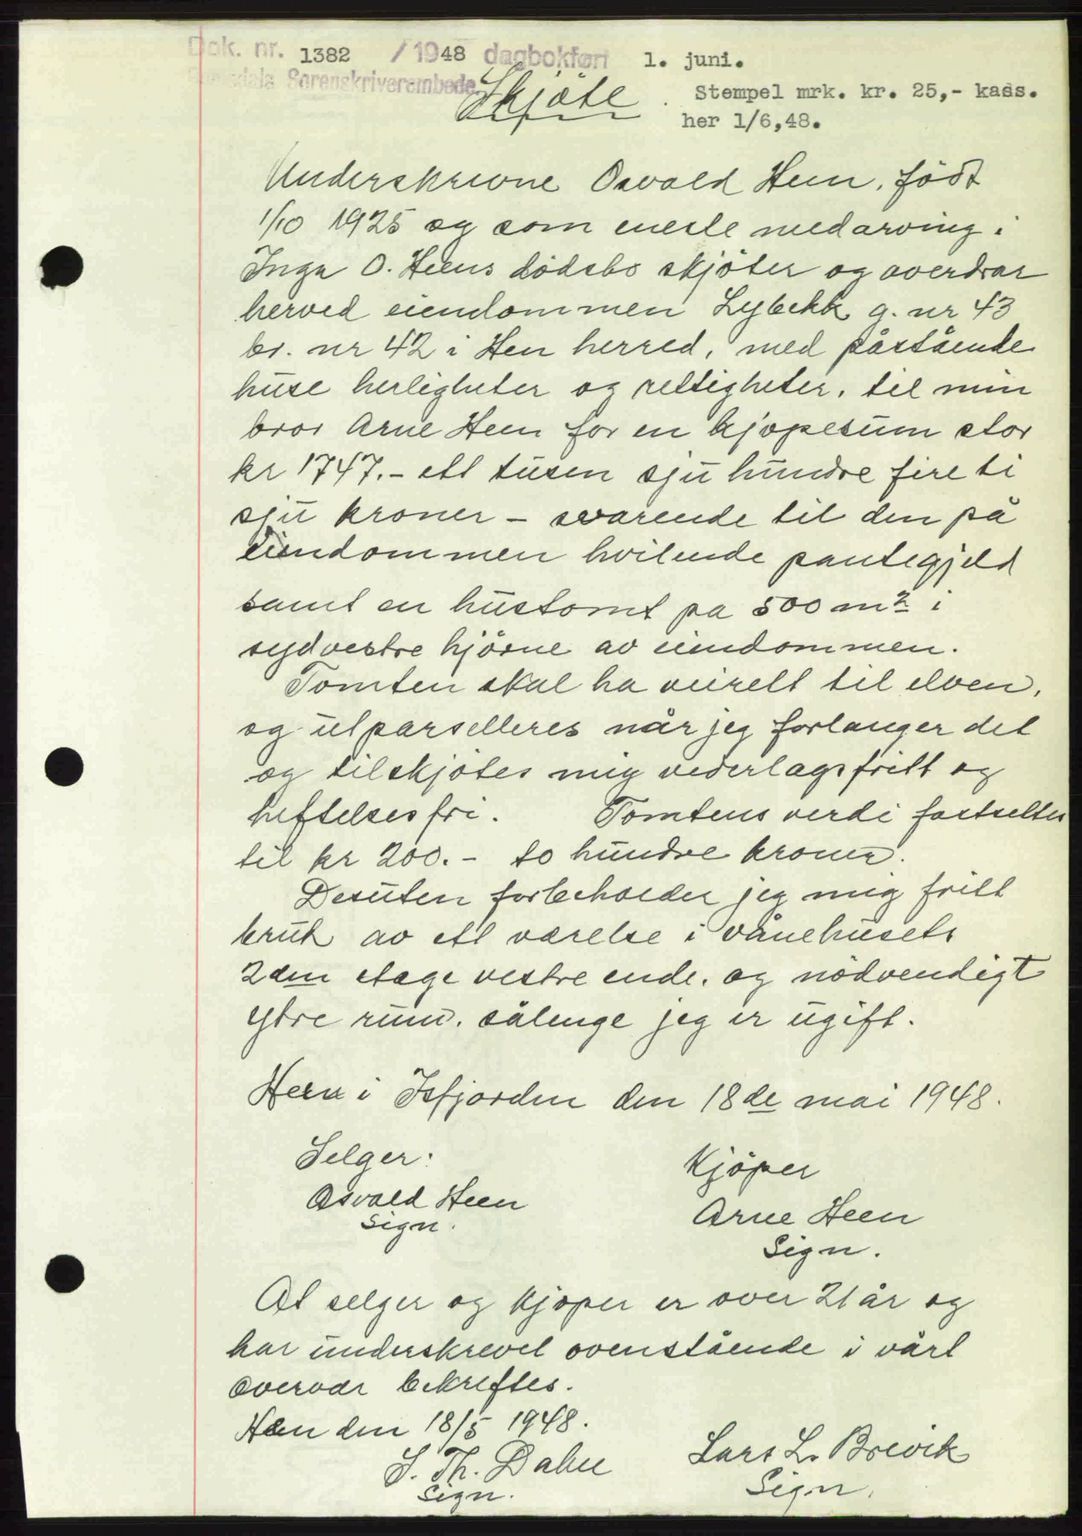 Dok. nr. 1382 / 1948 dagbokført 1. juni.
Romsdals Sorenskriverembede.
Stempel mrk. kr. 25,- kass.
her 1/6,48.
Skjöte
Underskrevne Osvald Heen, födt
1/10 1925 og som eneste medarving i
Inga O. Heens dödsbo skjöter og overdrar
herved eiendommen Lybekk g. nr 43
br. nr 42 i Hen herred, med påstående
huse herligheter og rettigheter, til min
bror Arne Heen for en kjöpesum stor
kr 1747.- ett tusen sju hundre fireti
sju kroner - svarende til den på
eiendommen hvilende pantegjeld
samt en hustomt på 500 m² i
sydvestre hjörne av eiendommen.
Tomten skal ha veirett til elven,
og utparselleres når jeg forlanger det
og tilskjötes mig vederlagsfritt og
heftelsesfri. Tomtens verdi fastsettes
til kr 200.- to hundre kroner.
Desuten forbeholder jeg mig fritt
bruk av ett værelse i vånehusets
2den etage vestre ende, og nödvendigt
ytre rum, sålenge jeg er ugift.
Heen i Isfjorden den 18de mai 1948.
Selger: Kjöper
Osvald Heen Arne Heen
Sign. Sign.
At selger og kjöper er over 21 år og
har underskrevet ovenstående i vårt
overvær bekreftes.
Hen den 18/5 1948.
S. Th. Dahle Lars L. Brevik
Sign. Sign.